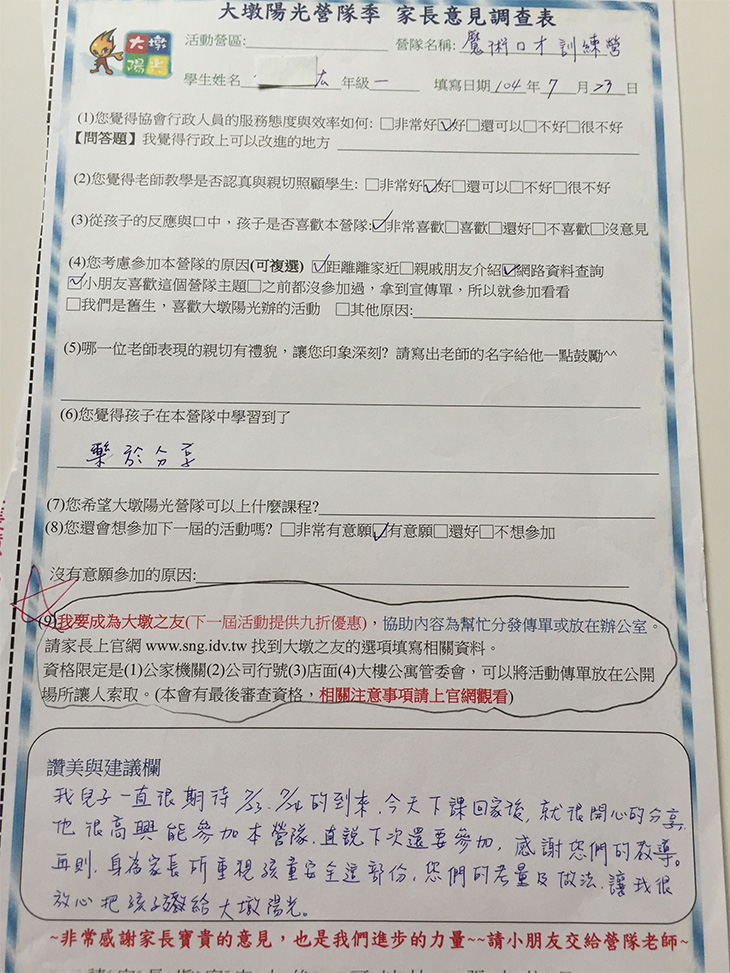 大墩陽光營隊季 家長意見調查表
大墩
陽光
活動營區: 營隊名稱: 魔術口才訓練營
學生姓名 広 年級 一 填寫日期 104 年 7 月 23 日
(1)您覺得協會行政人員的服務態度與效率如何: □非常好☑好□還可以□不好□很不好
【問答題】我覺得行政上可以改進的地方
(2)您覺得老師教學是否認真與親切照顧學生: □非常好☑好□還可以□不好□很不好
(3)從孩子的反應與口中，孩子是否喜歡本營隊:☑非常喜歡□喜歡□還好□不喜歡□沒意見
(4)您考慮參加本營隊的原因(可複選) ☑距離離家近□親戚朋友介紹☑網路資料查詢
☑小朋友喜歡這個營隊主題□之前都沒參加過，拿到宣傳單，所以就參加看看
□我們是舊生，喜歡大墩陽光辦的活動 □其他原因:
(5)哪一位老師表現的親切有禮貌，讓您印象深刻? 請寫出老師的名字給他一點鼓勵^^
(6)您覺得孩子在本營隊中學習到了
樂於分享
(7)您希望大墩陽光營隊可以上什麼課程?
(8)您還會想參加下一屆的活動嗎? □非常有意願☑有意願□還好□不想參加
沒有意願參加的原因:
(9)我要成為大墩之友(下一屆活動提供九折優惠)，協助內容為幫忙分發傳單或放在辦公室。
請家長上官網 www.sng.idv.tw 找到大墩之友的選項填寫相關資料。
資格限定是(1)公家機關(2)公司行號(3)店面(4)大樓公寓管委會，可以將活動傳單放在公開
場所讓人索取。(本會有最後審查資格，相關注意事項請上官網觀看)
讚美與建議欄
我兒子一直很期待 7/23、7/24 的到來，今天下課回家後，就很開心的分享，
他很高興能參加本營隊，直說下次還要參加，感謝您們的教導。
再則，身為家長所重視孩童安全這部份，您們的考量及做法，讓我很
放心把孩子交給大墩陽光。
~非常感謝家長寶貴的意見，也是我們進步的力量~~請小朋友交給營隊老師~